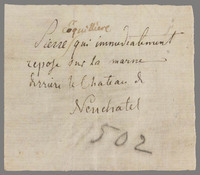 Coquilliere
Pierre qui immediatement
repose sur la marne
derriere le Chateau de
Neuchatel
502